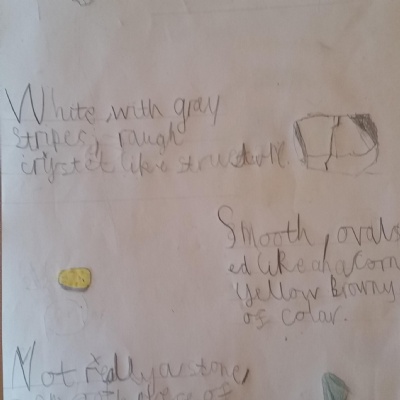 White, with gray
stripes, rough
crystel like structure.
Smooth, ovals
ed like an acorn
Yellow Browny
of colar.
Not really a stone,
of